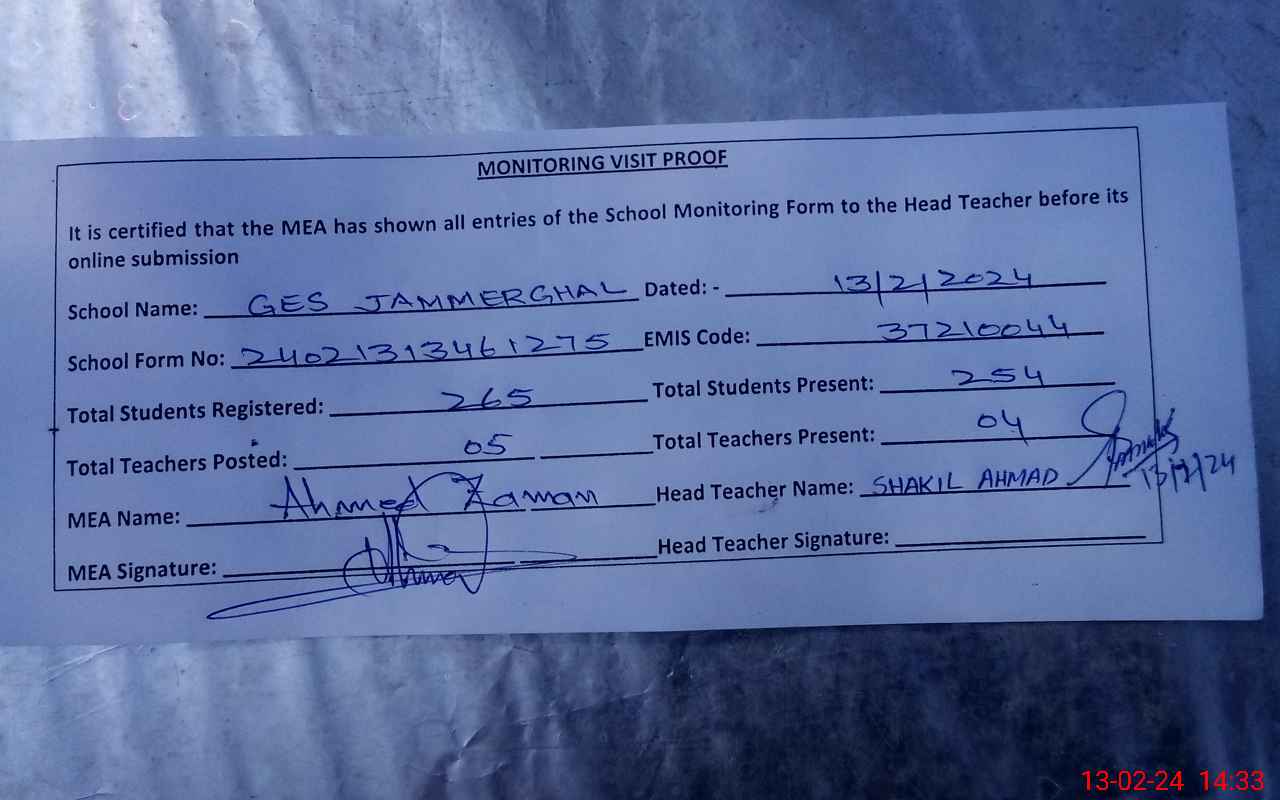 MONITORING VISIT PROOF
It is certified that the MEA has shown all entries of the School Monitoring Form to the Head Teacher before its
online submission
School Name: GES JAMMERGHAL Dated: - 13/2/2024
School Form No: 24021313461275 EMIS Code: 37210044
Total Students Registered: 265 Total Students Present: 254
Total Teachers Posted: 05 Total Teachers Present: 04
MEA Name: Ahmed Zaman Head Teacher Name: SHAKIL AHMAD 13/2/24
MEA Signature: Head Teacher Signature:
13-02-24 14:33